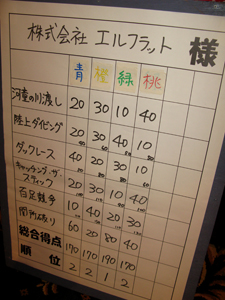 株式会社 エルフラット 様
青 橙 緑 桃
河童の川渡し 20 30 10 40
陸上ダイビング 20 30 40 10
ダックレース 40 20 30 10
キャッチング・ザ・スティック 20 30 10 40
百足競争 10 40 20 30
関門破り 60 20 80 40
総合得点 170 170 190 170
順位 2 2 1 2